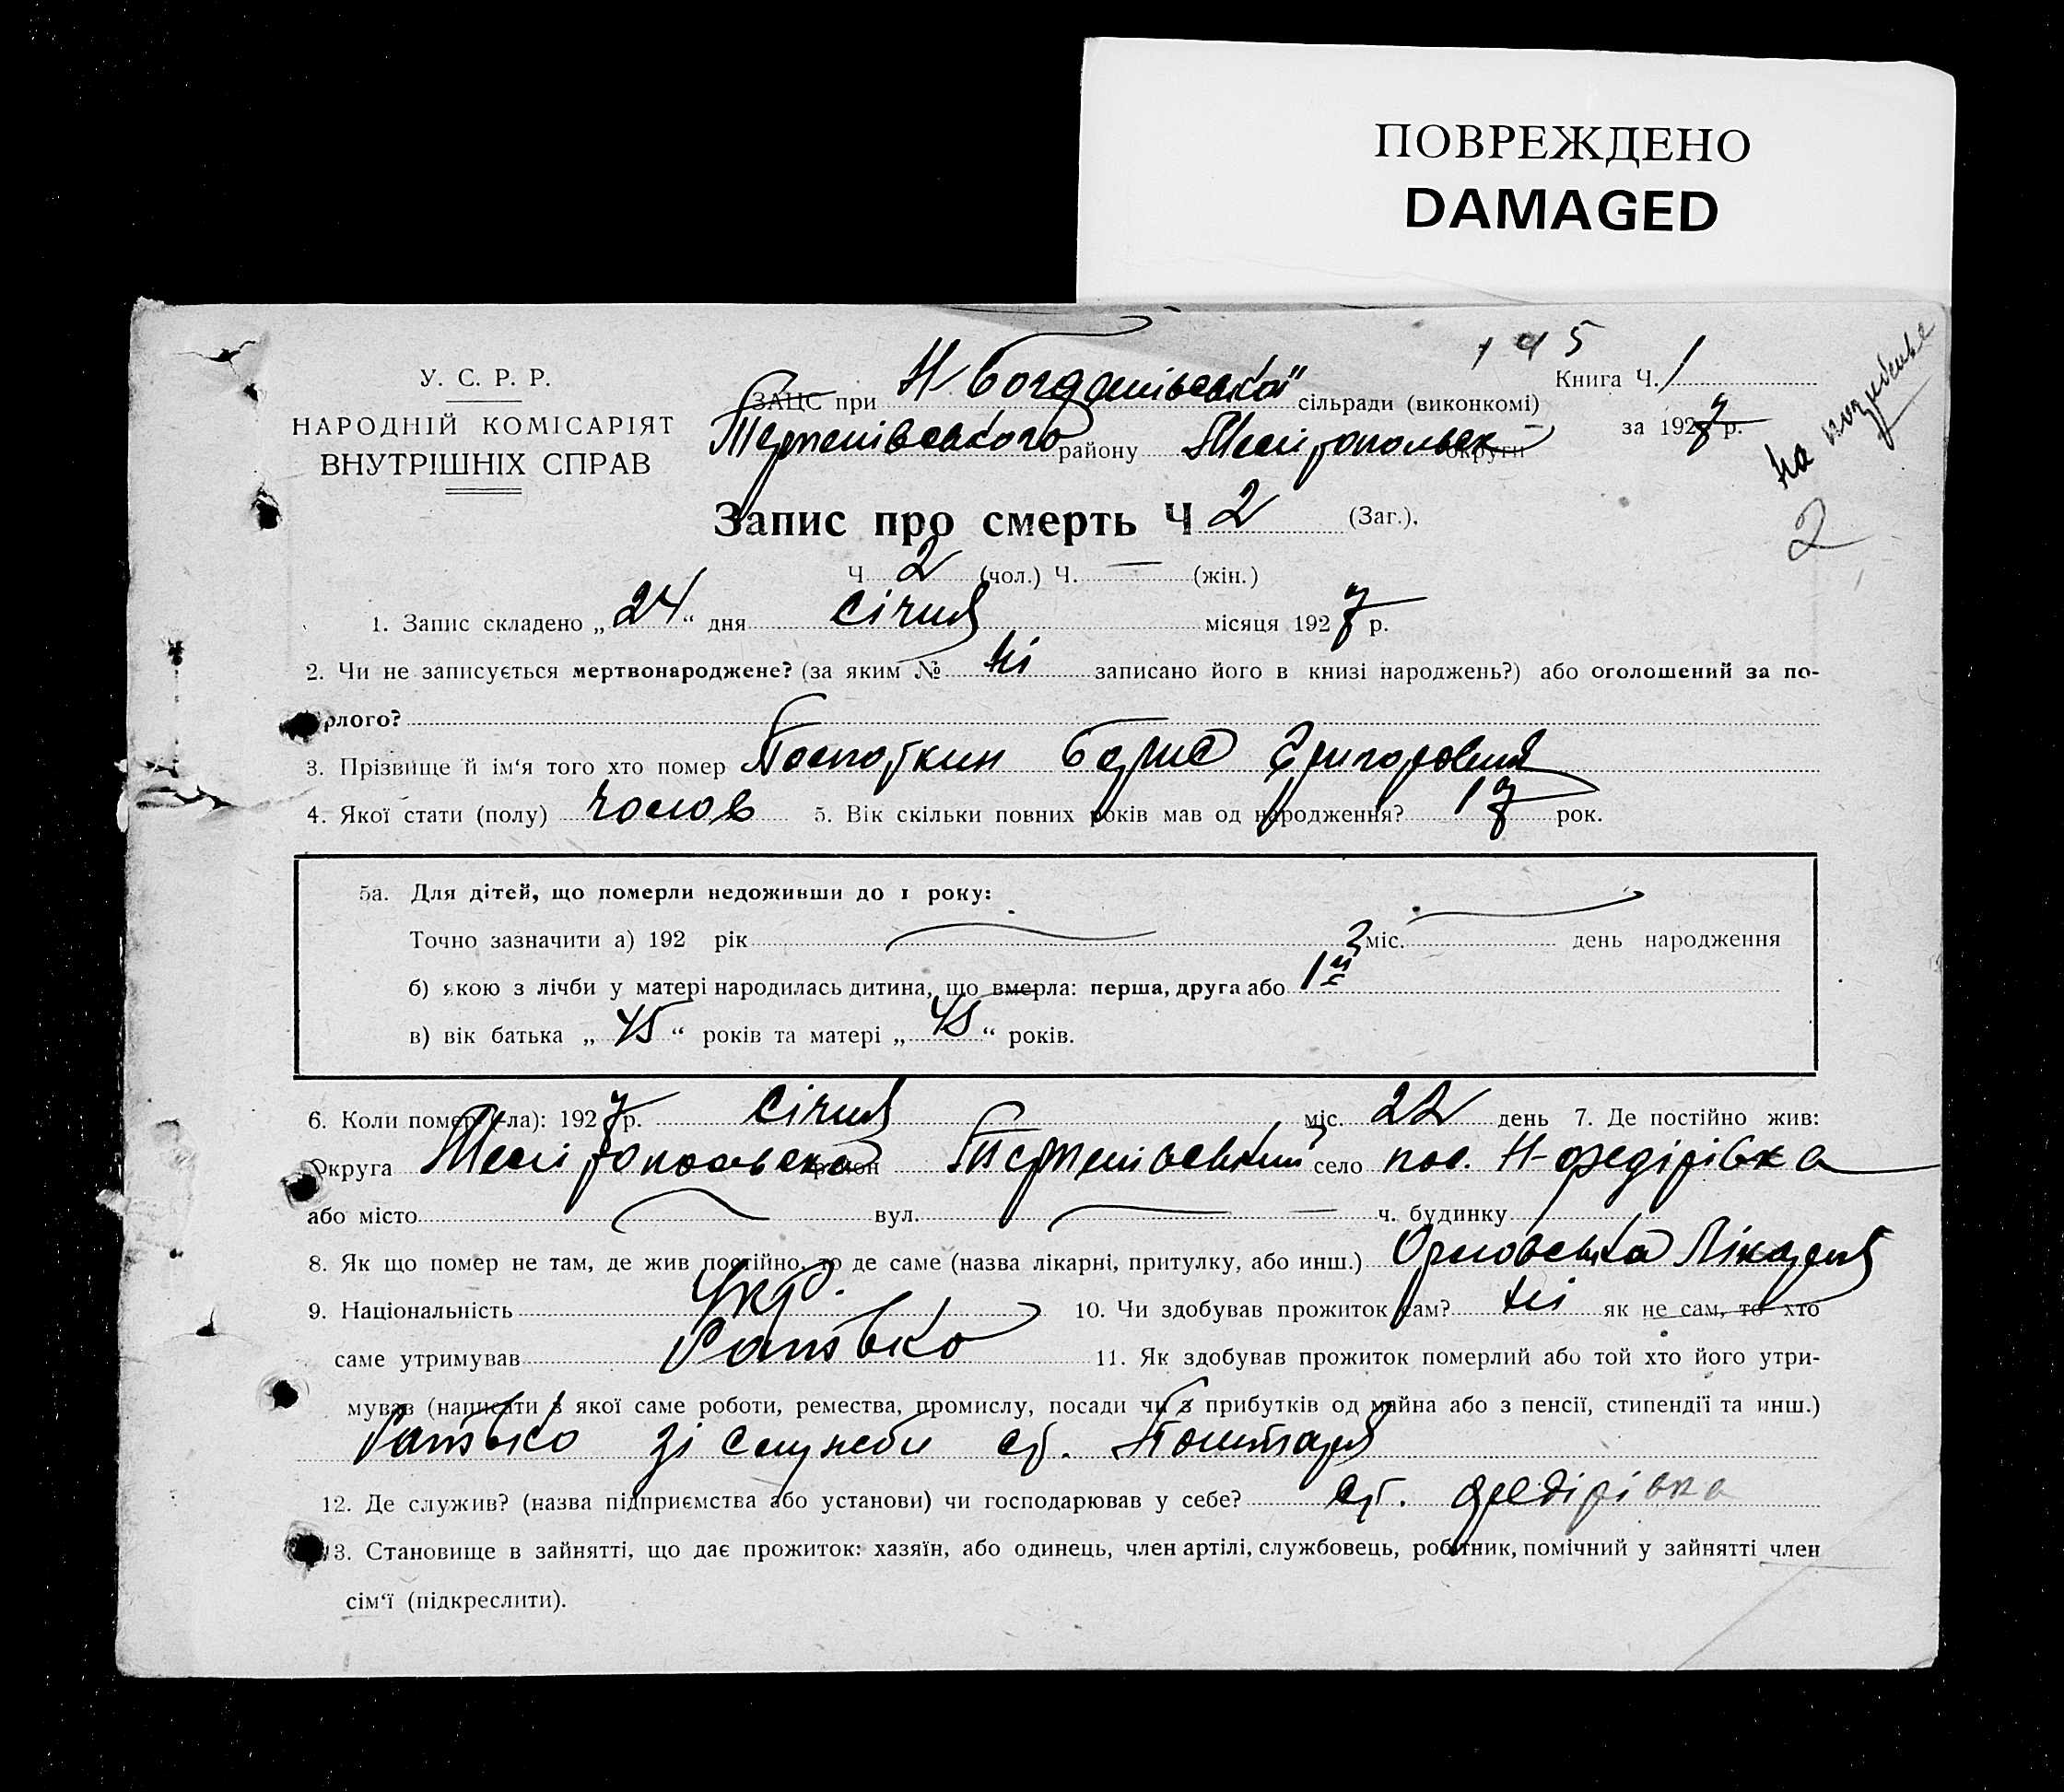 ПОВРЕЖДЕНО
DAMAGED
195
У. С. Р. Р.
НАРОДНІЙ КОМІСАРІЯТ
ВНУТРІШНІХ СПРАВ
ЗАЦС при Н Богданівської сільради (виконкомі)
Терпенівського району Мелітопольськ округи
Книга Ч. 1
за 1927 р.
на
2
Запис про смерть Ч 2 (Заг.).
Ч 2 (чол.) Ч. — (жін.)
1. Запис складено „24“ дня січня місяця 1927 р.
2. Чи не записується мертвонароджене? (за яким № ні записано його в книзі народжень?) або оголошений за по-
рлого?
3. Прізвище й ім'я того хто помер Борис Григорович
4. Якої стати (полу) чолов 5. Вік скільки повних років мав од народження? 17 рок.
5а. Для дітей, що померли недоживши до 1 року:
Точно зазначити а) 192 рік міс. день народження
б) якою з лічби у матері народилась дитина, що вмерла: перша, друга або 1й
в) вік батька „45“ років та матері „45“ років.
6. Коли помер (-ла): 1927 р. січня міс. 22 день 7. Де постійно жив:
Округа Мелітопольська район Терпенівський село пос. Н-Федірівка
або місто вул. — ч. будинку
8. Як що помер не там, де жив постійно, то де саме (назва лікарні, притулку, або инш.) Орловська Лікарня
9. Національність Укр. 10. Чи здобував прожиток сам? ні як не сам, то хто
саме утримував Батько 11. Як здобував прожиток померлий або той хто його утри-
мував (написати з якої саме роботи, ремества, промислу, посади чи з прибутків од майна або з пенсії, стипендії та инш.)
Батько зі служби ст.
12. Де служив? (назва підприємства або установи) чи господарював у себе? ст. Федірівка
13. Становище в зайнятті, що дає прожиток: хазяїн, або одинець, член артілі, службовець, робітник, помічний у зайнятті член
сім'ї (підкреслити).